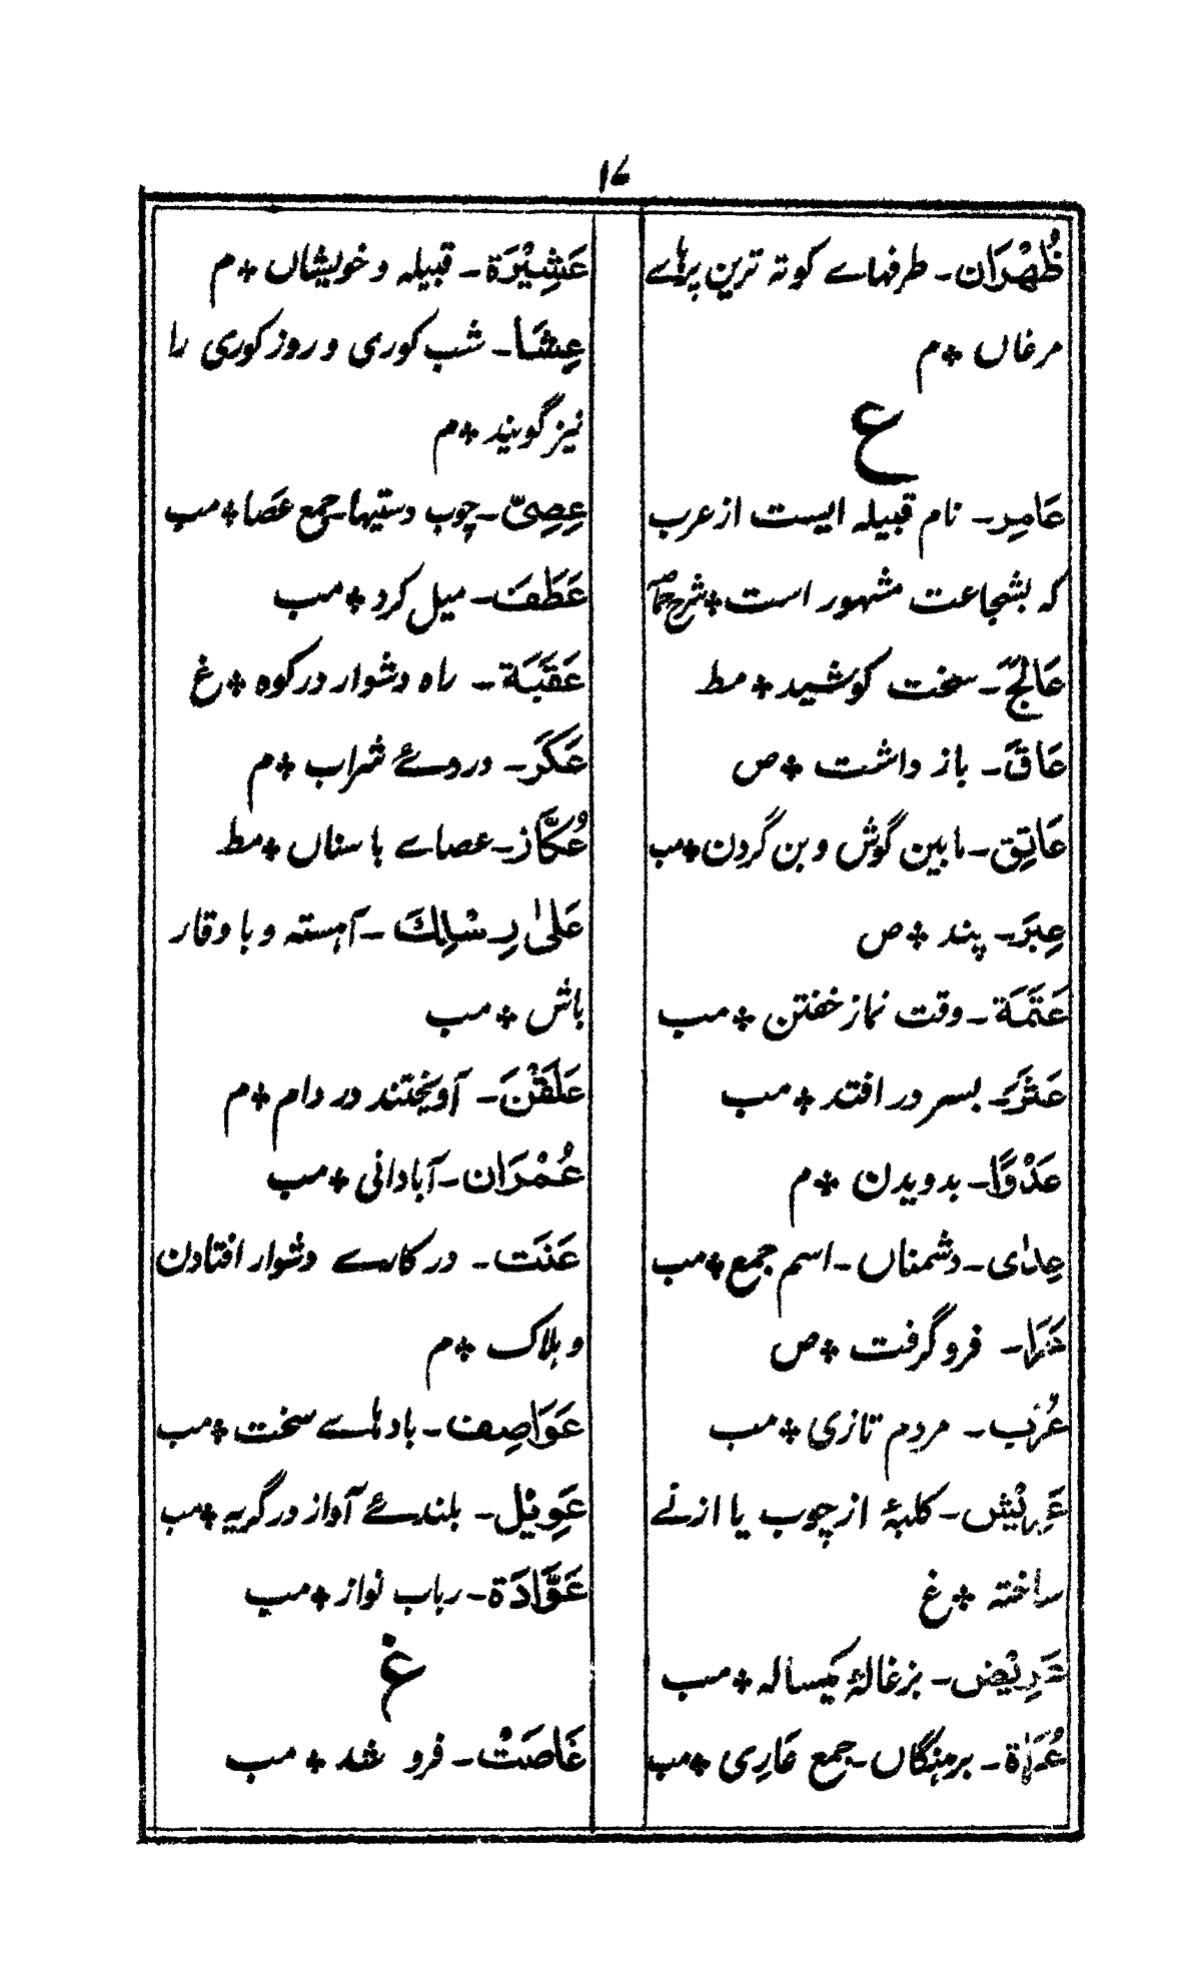 ۱۷
ظُهْرَان۔ طرفہاے کوتہ ترین پرہاے
مرغاں ٭ م
ع
عَامِر۔ نام قبیلہ ایست از عرب
کہ بشجاعت مشہور است ٭ شرح
عَالَجَ۔ سخت کوشید ٭ مط
عَاقَ۔ باز داشت ٭ ص
عَاتِق۔ مابین گوش و بن گردن ٭ مب
عِبَر۔ پند ٭ ص
عَتَمَة۔ وقت نماز خفتن ٭ مب
عَثَرَ۔ بسر در افتد ٭ مب
عَدْوًا۔ بدویدن ٭ م
عِدٰی۔ دشمناں۔ اسم جمع ٭ مب
عَرَا۔ فرو گرفت ٭ ص
عُرْب۔ مردم تازی ٭ مب
عَرِیْش۔ کلبۂ از چوب یا از نے
ساختہ ٭ غ
عَرِیْض۔ بزغالۂ یکسالہ ٭ مب
عُرَاة۔ برہنگاں۔ جمع عَارِی ٭ مب
عَشِیْرَة۔ قبیلہ و خویشاں ٭ م
عِشَا۔ شب کوری و روز کوری را
نیز گویند ٭ م
عِصِیّ۔ چوب دستیہا۔ جمع عَصَا ٭ مب
عَطَفَ۔ میل کرد ٭ مب
عَقَبَة۔ راہ دشوار در کوہ ٭ غ
عَکَر۔ دردیٔے شراب ٭ م
عُکَّاز۔ عصاے با سناں ٭ مط
عَلیٰ رِسْلِكَ۔ آہستہ و با وقار
باش ٭ مب
عَلَقْنَ۔ آویختند در دام ٭ م
عُمْرَان۔ آبادانی ٭ مب
عَنَت۔ در کارے دشوار افتادن
و ہلاک ٭ م
عَوَاصِف۔ بادہاے سخت ٭ مب
عَوِیْل۔ بلندیٔے آواز در گریہ ٭ مب
عَوَّادَة۔ رباب نواز ٭ مب
غ
غَاصَتْ۔ فرو شد ٭ مب